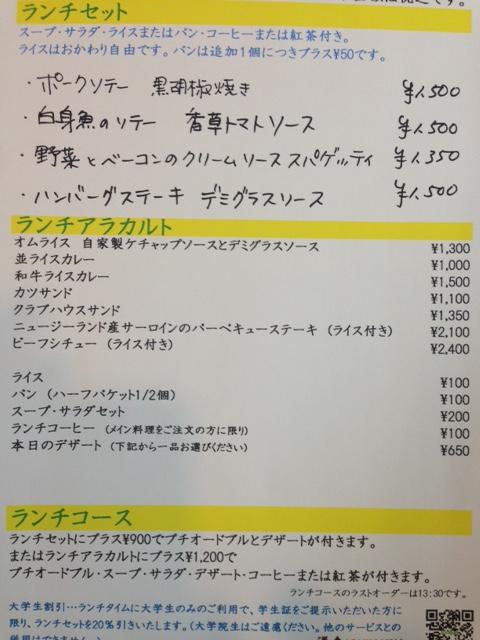 ランチセット
スープ・サラダ・ライスまたはパン・コーヒーまたは紅茶付き。
ライスはおかわり自由です。パンは追加1個につきプラス¥50です。
・ポークソテー 黒胡椒焼き ¥1,500
・白身魚のソテー 香草トマトソース ¥1,500
・野菜とベーコンのクリームソース スパゲッティ ¥1,350
・ハンバーグステーキ デミグラスソース ¥1,500
ランチアラカルト
オムライス 自家製ケチャップソースとデミグラスソース ¥1,300
並ライスカレー ¥1,000
和牛ライスカレー ¥1,500
カツサンド ¥1,100
クラブハウスサンド ¥1,350
ニュージーランド産サーロインのバーベキューステーキ (ライス付き) ¥2,100
ビーフシチュー (ライス付き) ¥2,400
ライス ¥100
パン (ハーフバケット1/2個) ¥100
スープ・サラダセット ¥200
ランチコーヒー (メイン料理をご注文の方に限り) ¥100
本日のデザート (下記から一品お選びください) ¥650
ランチコース
ランチセットにプラス¥900でプチオードブルとデザートが付きます。
またはランチアラカルトにプラス¥1,200で
プチオードブル・スープ・サラダ・デザート・コーヒーまたは紅茶が付きます。
ランチコースのラストオーダーは13:30です。
大学生割引…ランチタイムに大学生のみのご利用で、学生証をご提示いただいた方に
限り、ランチセットを20%引きいたします。(大学院生はご遠慮ください。他のサービスとの